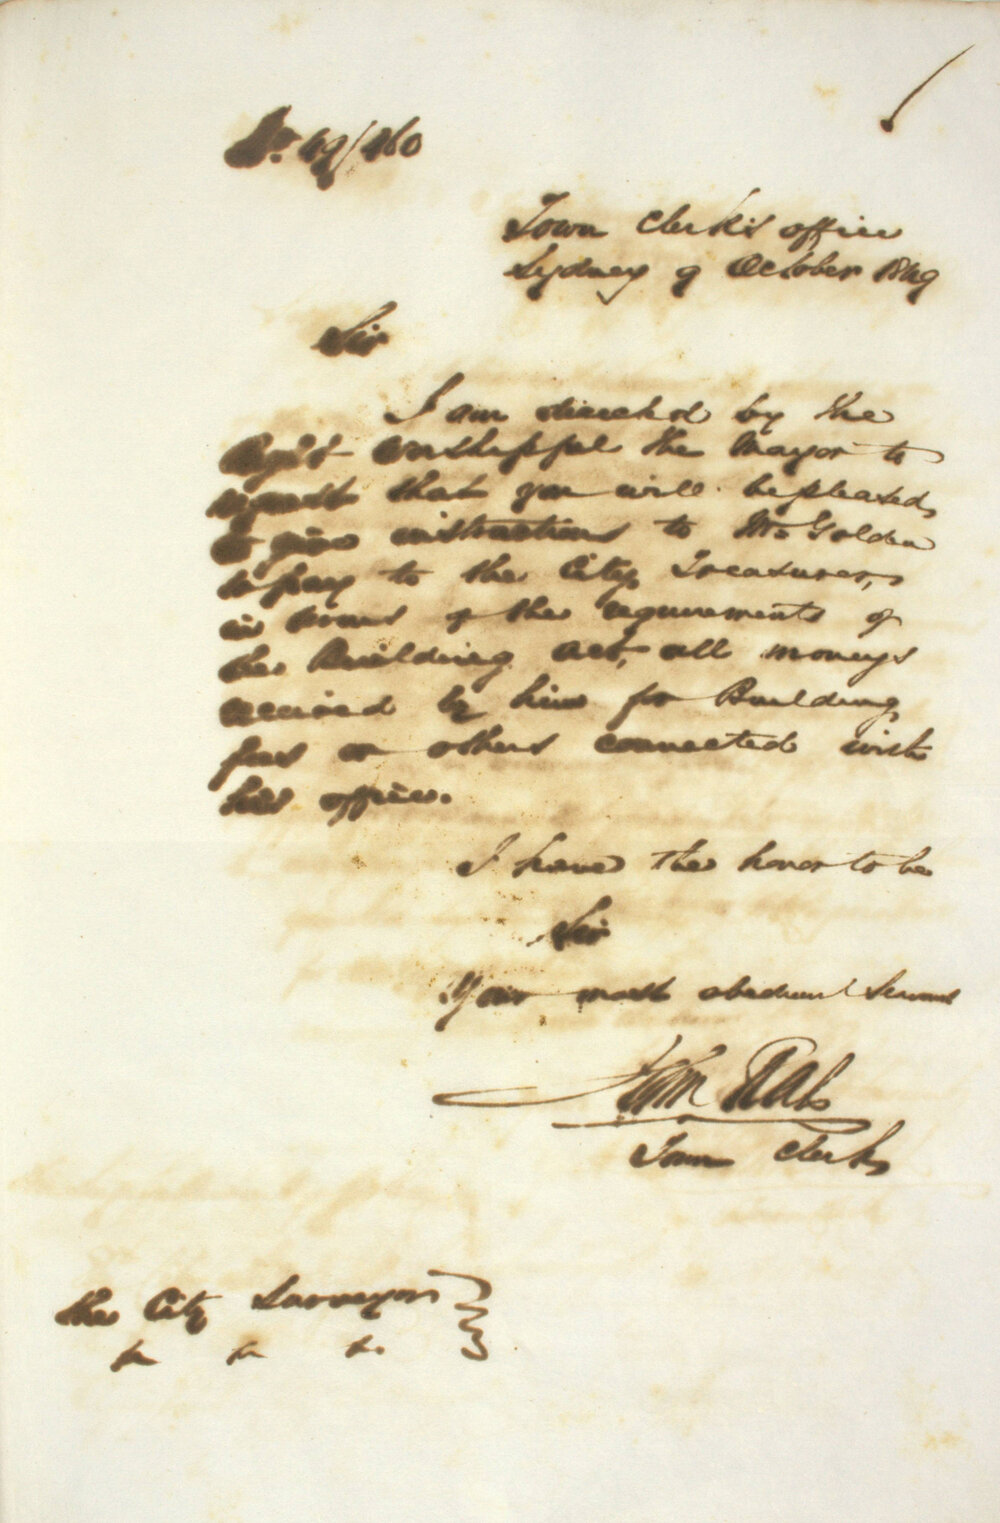 No. 49/460
Town Clerk's office
Sydney 9 October 1849
Sir
I am directed by the
Right Worshipful the Mayor to
request that you will be pleased
to give instructions to Mr Golden
to pay to the City Treasurer,
in terms of the requirements of
the Building Act, all moneys
received by him for Building
fees or others connected with
his office.
I have the honor to be
Sir
Your most obedient Servant
John Rae
Town Clerk
The City Surveyor